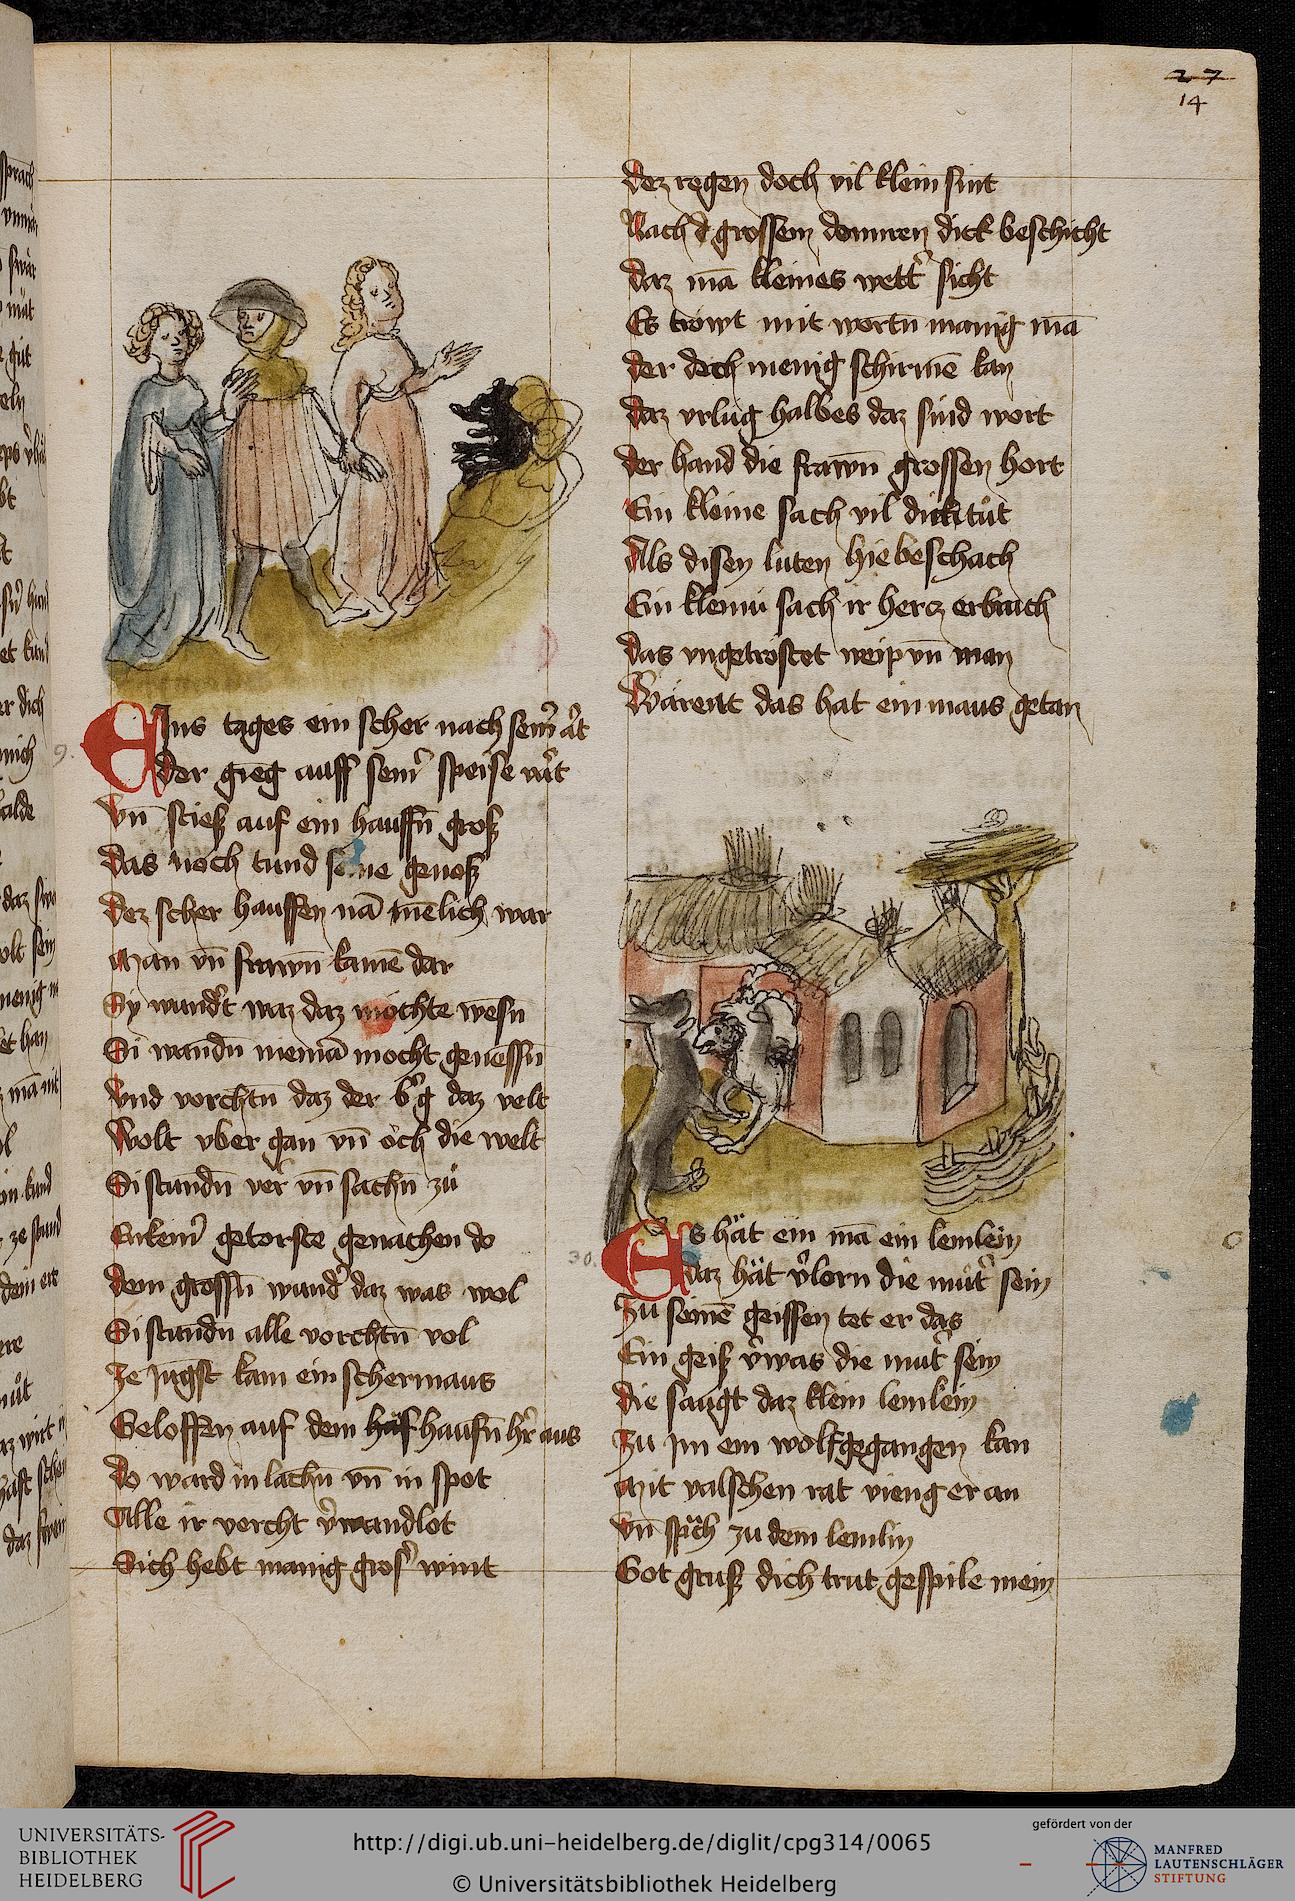 27
14
EIns tages ein scher nach sein̄ art
der gieng auff sein' speise vart
Vn̄ stiesz auf ein hauffn̄ grosz
das noch tund seine genosz
dez scher hauffen nā mēlich war
Man vn̄ frawn̄ kamē dar
Sy wand't waz daz möchte wesn̄
Si wandn̄ niemā mocht genessn̄
Vnd vorchtn̄ daz der b'g daz velt
Wolt vber gan vn̄ och die welt
Si stundn̄ ver vn̄ sachn̄ zů
Enkein' getorste genachen do
dem grossn̄ wund' daz was wol
Si stundn̄ alle vorchtn̄ vol
Ze jungst kam ein schermaus
Geloffen auf dem haufn̄ h'r aus
do ward in lachn̄ vn̄ in spot
Alle ir vorcht v'wandlot
Sich hebt manig gros' wint
dez regen doch vil klein sint
Nach d' grossem donnren dick beschicht
daz mā kleines wett' sicht
Es tröwt mit wortn̄ manig mā
der doch wenig schirmē kan
daz vrlug halbes daz sind wort
der hand die frawn̄ grossen hort
Ein kleine sach vil dick tůt
Als disen luten hie beschach
Ein kleinu sach ir hercz erbrach
das vngetröstet weip vn̄ man
Wärent das hat ein maus getan
9.
30.
Es hät ein mā ein lemlein
daz hät v'lorn die můt' sein
Zu seinē geissen tet er das
Ein geisz v'was die mut' sein
die saugt daz klein lemlein
Zu jm ein wolf gegangen kan
Mit valschen rat vieng er an
Vn̄ sprach zu dem lemlin
Got grusz dich trut gespile mein
UNIVERSITÄTS-
BIBLIOTHEK
HEIDELBERG
http://digi.ub.uni-heidelberg.de/diglit/cpg314/0065
© Universitätsbibliothek Heidelberg
gefördert von der
MANFRED
LAUTENSCHLÄGER
STIFTUNG